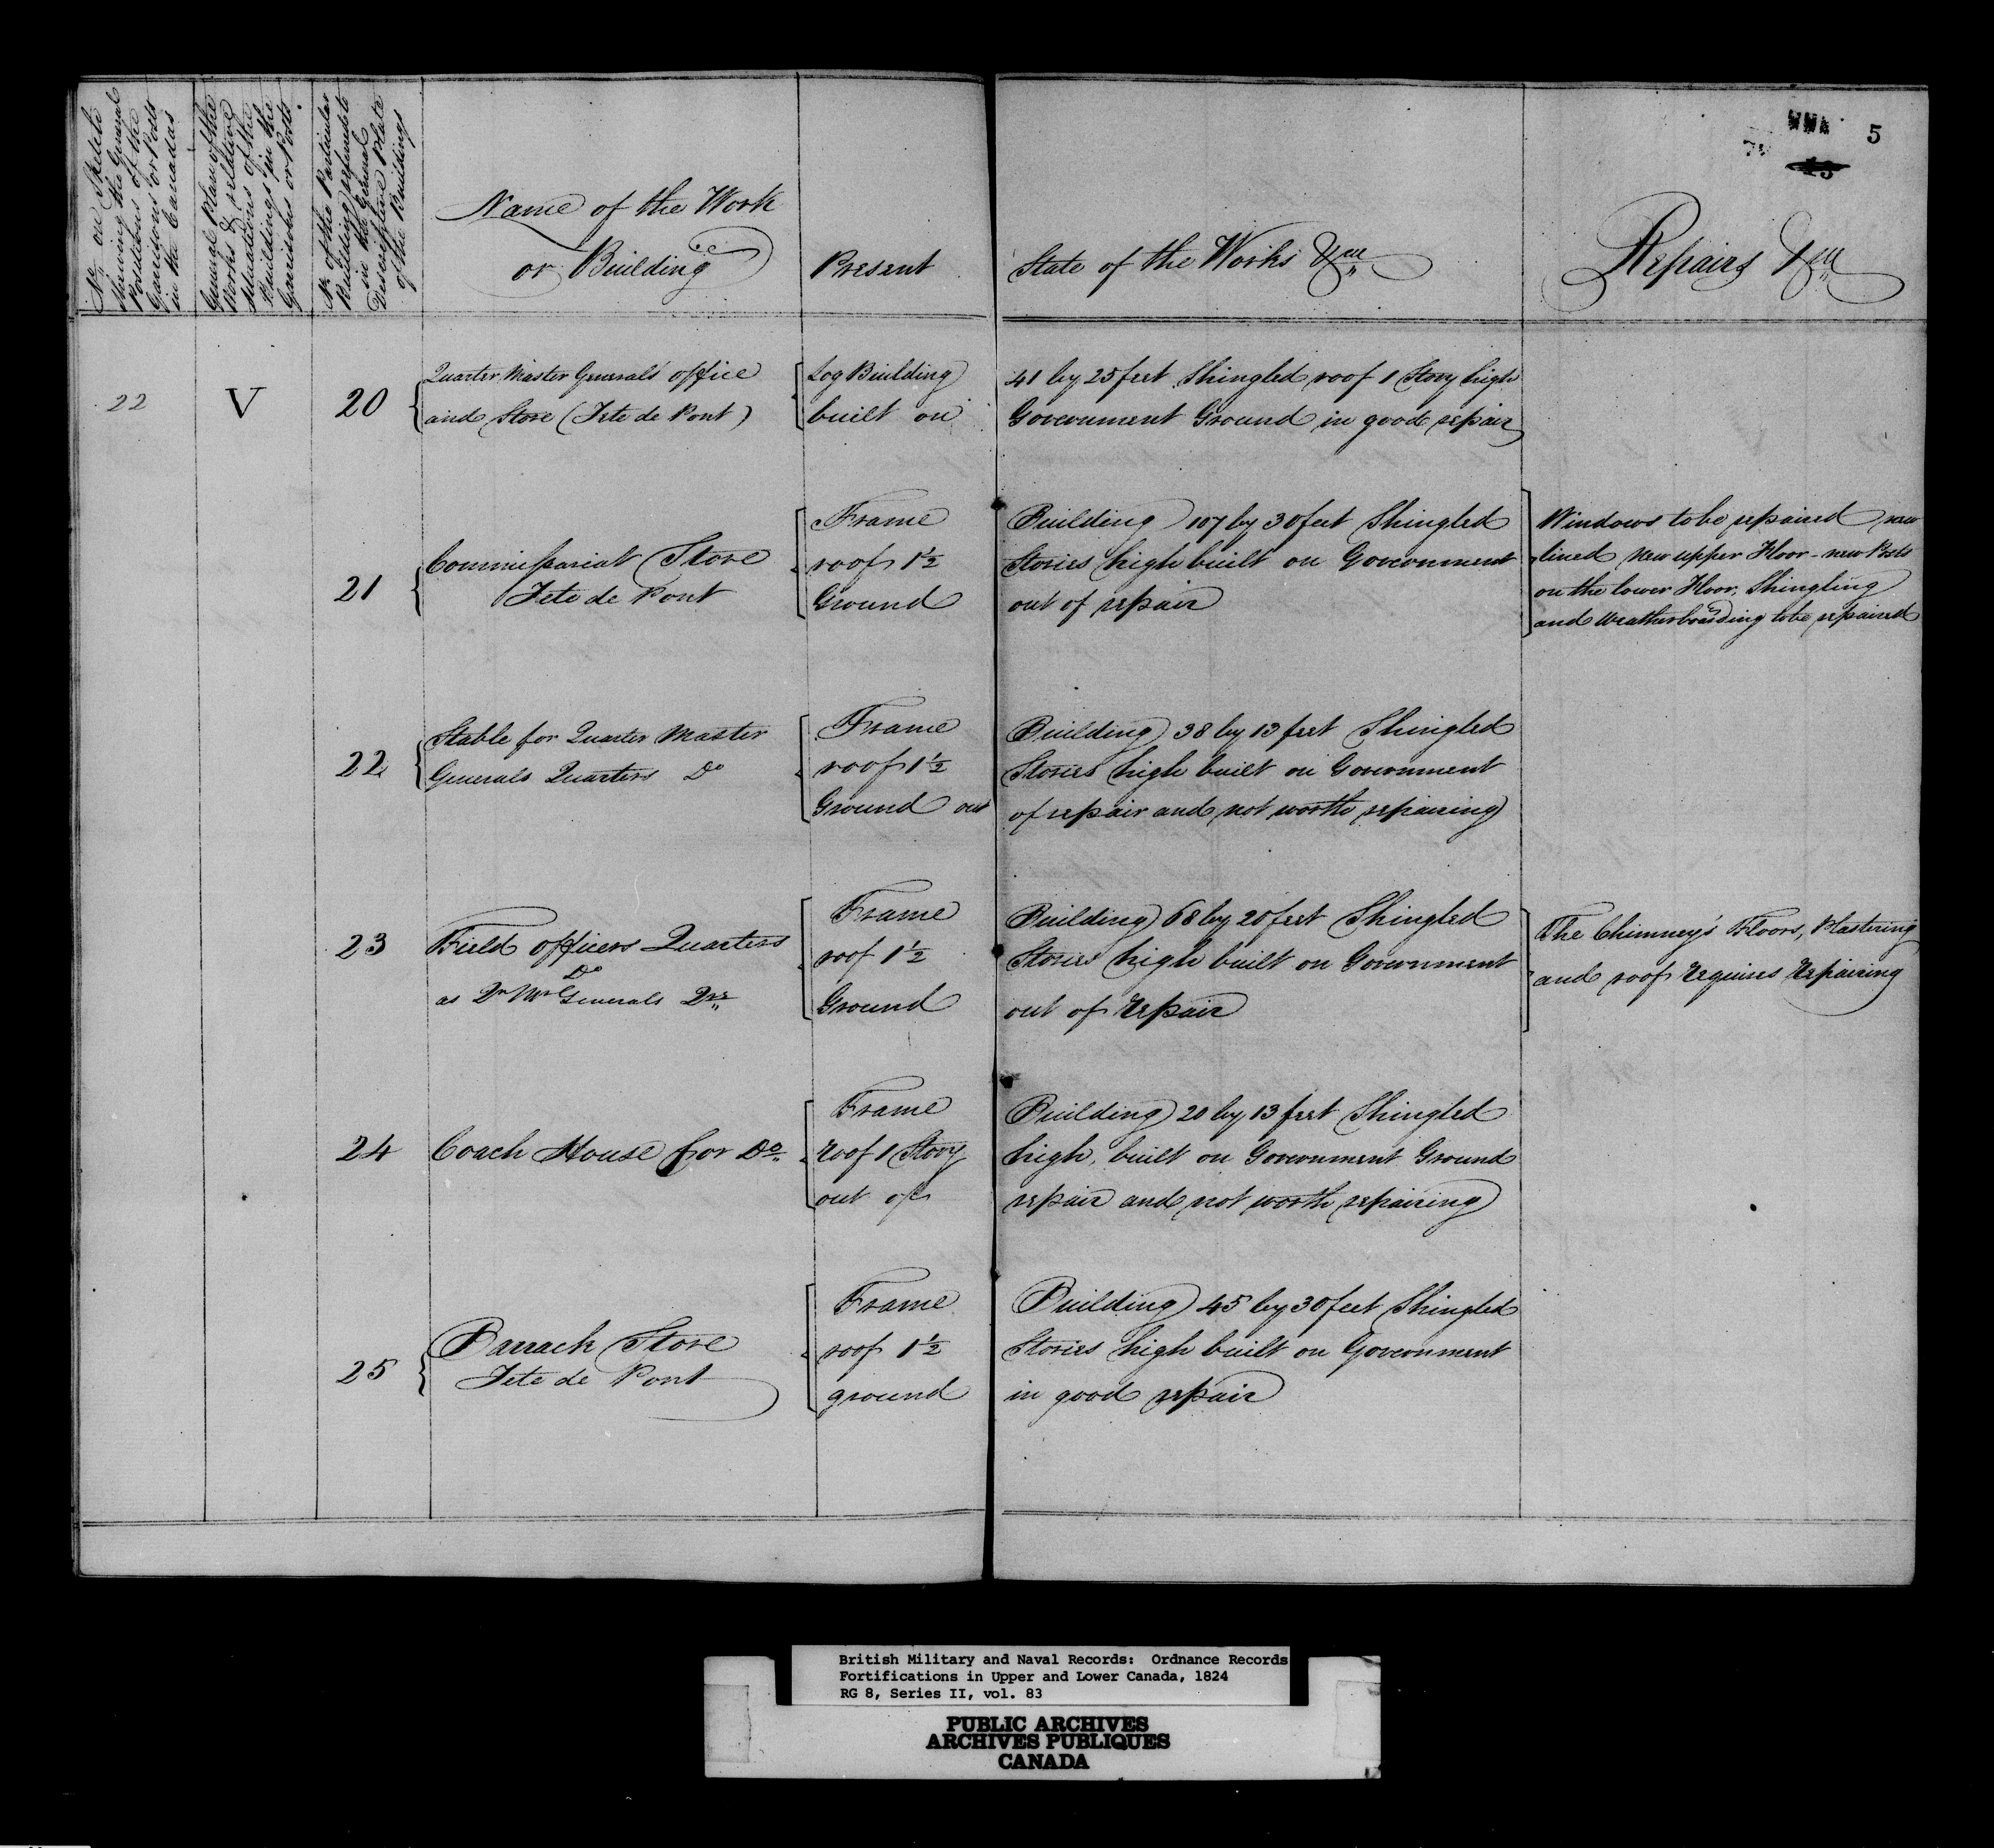 5
13
No. on Sketch
shewing the General
Positions of the
Garrisons or Posts
in the Canadas
General Plan of the
Works & relative
situations of the
Buildings in the
Garrisons or Posts.
No. of the Particular
Building refered to
in the General
Descriptive Plate
of the Buildings
Name of the Work
or Building
Present State of the Works &ca
Repairs &ca
22 V 20 Quarter Master Generals office
and Store (Tete de Pont)
Log Building 41 by 25 feet Shingled roof 1 Story high
built on Government Ground in good repair
21 Commissariat Store
Tete de Pont
Frame Building 107 by 30 feet Shingled
roof 1½ Stories high built on Government
Ground out of repair
Windows to be repaired new
lined New upper Floor - new Posts
on the lower Floor, Shingling
and Weatherboarding to be repaired
22 Stable for Quarter Master
Generals Quarters Do
Frame Building 38 by 13 feet Shingled
roof 1½ Stories high built on Government
Ground out of repair and not worth repairing
23 Field officers Quarters
Do
as Qr Mr Generals Qrs
Frame Building 68 by 20 feet Shingled
roof 1½ Stories high built on Government
Ground out of repair
The Chimney's Floors, Plastering
and roof requires repairing
24 Coach House for Do
Frame Building 20 by 13 feet Shingled
roof 1 Story high, built on Government Ground
out of repair and not worth repairing
25 Barrack Store
Tete de Pont
Frame Building 45 by 30 feet Shingled
roof 1½ Stories high built on Government
ground in good repair
British Military and Naval Records: Ordnance Records
Fortifications in Upper and Lower Canada, 1824
RG 8, Series II, vol. 83
PUBLIC ARCHIVES
ARCHIVES PUBLIQUES
CANADA